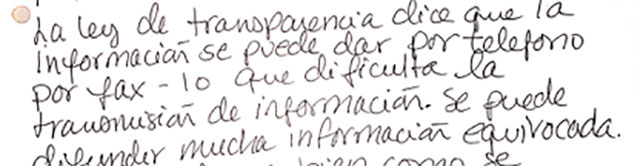 La ley de transparencia dice que la
información se puede dar por telefono
por fax - lo que dificulta la
transmisión de información. Se puede
difundir mucha información equivocada.
bien como se